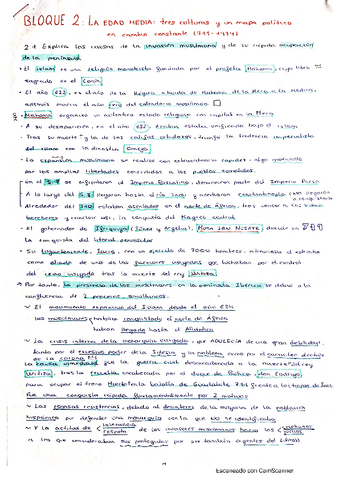 BLOQUE 2: LA EDAD MEDIA: tres culturas y un mapa político
en cambio constante (711-1474)
2.1 Explica las causas de la invasión musulmana y de su rápida ocupación
de la península
• El islam es una religión monoteísta fundada por el profeta Mahoma, cuyo libro
sagrado es el Corán
• El año 622, es el año de la Hégira o huida de Mahoma de la Meca a la Medina,
además marca el año cero del calendario musulmán
• Mahoma organizó un auténtico estado religioso con capital en la Meca
• A su desaparición, en el año 632, Arabia estaba unificada bajo el islam
• Tras su muerte y la de los califas ortodoxos, triunfó la tendencia imperialista
del islam con la dinastía Omeya
• La expansión musulmana se realizó con extraordinaria rapidez, algo motivado
por las amplias libertades concedidas a los pueblos sometidos.
en el S.7 se enfrentaron al Imperio Bizantino, dominaron parte del Imperio Persa
A lo largo del S.8 llegaron hasta
Alrededor del estaban asentados en el norte de África, tras vencer a las tribus
bereberes y concluir así, la conquista del Magreb central
• El gobernador de Ifriquiya (Túnez y Argelia), Musa Ibn Nusayr, decidió en 711
la conquista del litoral peninsular
• Su lugarteniente, Tariq, con un ejército de 7000 hombres, atravesó el estrecho
como aliado de uno de los partidos visigodos que luchaban por el control
del reino visigodo tras la muerte del rey Witiza
→ Por tanto, la presencia de los musulmanes en la península Ibérica se debió a la
confluencia de 2 procesos simultáneos.
~ El movimiento expansivo del Islam desde el año 634
los musulmanes habían conquistado el norte de África
habían llegado hasta el Atlántico
~ La crisis interna de la monarquía visigoda, que adolecía de una gran debilidad,
tanto por el excesivo poder de la Iglesia y la nobleza como por el carácter electivo
de la corona
La causa inmediata fue la guerra civil desencadenada a la muerte del rey
Witiza, tras la elección de Don Rodrigo
para ocupar el trono batalla de Guadalete 711 frente a las tropas de
Fue una conquista rápida fundamentalmente por 2 motivos
~ Las escasas resistencias, debido al desinterés de la mayoría de los nobles
hispanos por defender una monarquía con la que no se identificaba
~ Y la actitud de tolerancia
respeto de los invasores musulmanes hacia los
a los que consideraban sus protegidos por ser también creyentes del Libro
Escaneado con CamScanner